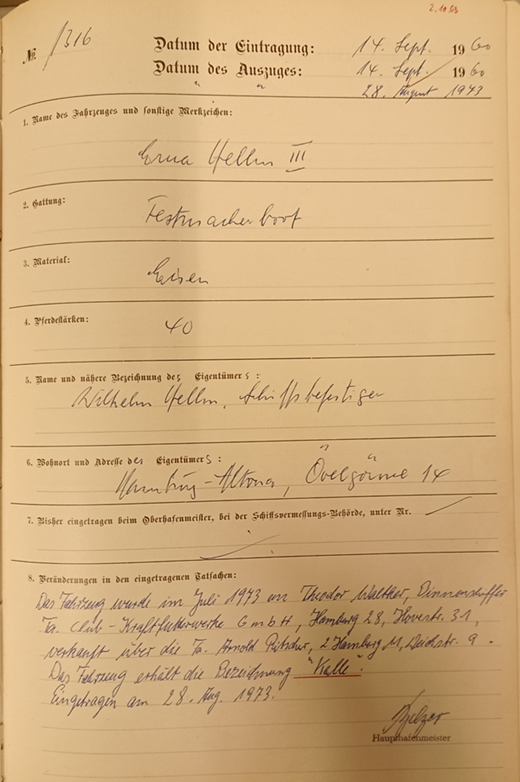 2.1088
№ 1316
Datum der Eintragung: 14. Sept. 1960
Datum des Auszuges: 14. Sept. 1960
" " 28. August 1973
1. Name des Fahrzeuges und sonstige Merkzeichen:
Erna Helm III
2. Gattung:
Festmacherboot
3. Material:
Eisen
4. Pferdestärken:
40
5. Name und nähere Bezeichnung des Eigentümers:
Wilhelm Helm, Schiffsbefestiger
6. Wohnort und Adresse des Eigentümers:
Hamburg-Altona, Övelgönne 14
7. Bisher eingetragen beim Oberhafenmeister, bei der Schiffsvermessungs-Behörde, unter Nr. —
8. Veränderungen in den eingetragenen Tatsachen:
Das Fahrzeug wurde im Juli 1973 an Theodor Walther,
Fa. Club-Kraftfutterwerke GmbH, Hamburg 28, Hovestr. 31,
verkauft über die Fa. Arnold Ritscher, 2 Hamburg 11, Deichstr. 9.
Das Fahrzeug erhält die Bezeichnung "Kalle".
Eingetragen am 28. Aug. 1973.
Haupthafenmeister